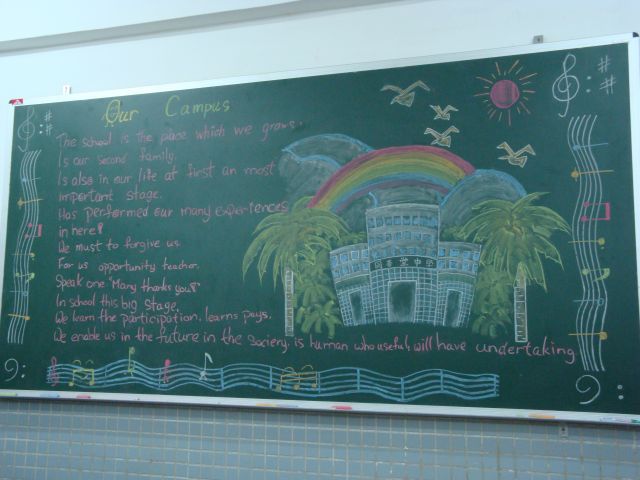 Our Campus
The school is the place which we grows.
Is our second family.
Is also in our life at first an most
important stage.
Has performed our many experiences
in here!
We must to forgive us.
For us opportunity teacher.
Speak one "Many thanks you"!
In school this big stage.
We learn the participation, learns pays.
We enable us in the future in the society, is human who useful, will have undertaking